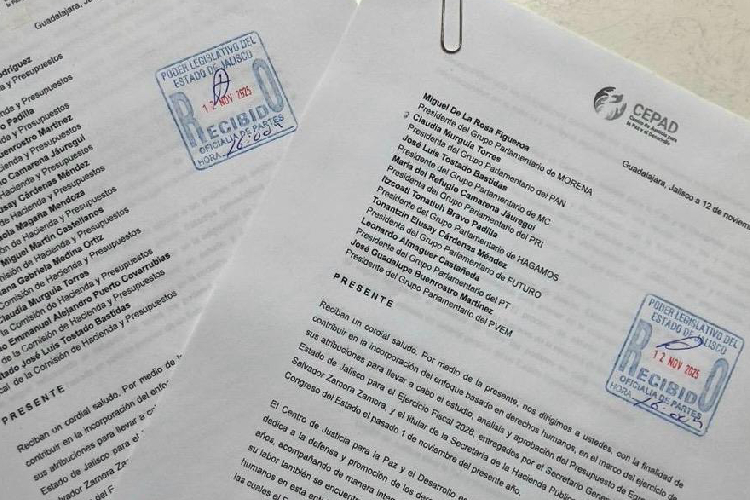 Guadalajara, Ja
odríguez
a y Presupuestos
enda y Presupuestos
o Padilla
enda y Presupuestos
errostro Martínez
cienda y Presupuestos
Camarena Jáuregui
Hacienda y Presupuestos
say Cárdenas Méndez
e Hacienda y Presupuestos
ela Magaña Mendoza
ón de Hacienda y Presupuestos
Miguel Martín Castellanos
isión de Hacienda y Presupuestos
ana Gabriela Medina Ortiz
Comisión de Hacienda y Presupuestos
Claudia Murguía Torres
la Comisión de Hacienda y Presupuestos
Emmanuel Alejandro Puerto Covarrubias
de la Comisión de Hacienda y Presupuestos
José Luis Tostado Bastidas
al de la Comisión de Hacienda y Presupuestos
PRESENTE
Reciban un cordial saludo. Por medio de
contribuir en la incorporación del enfoque
sus atribuciones para llevar a c
Estado de Jalisco para el
Salvador Zamora Zamora
Congreso del
PODER LEGISLATIVO DEL
ESTADO DE JALISCO
12 NOV 2025
RECIBIDO
OFICIALIA DE PARTES
HORA
CEPAD
Guadalajara, Jalisco a 12 de noviem
Miguel De La Rosa Figueroa
Presidente del Grupo Parlamentario de MORENA
Claudia Murguía Torres
Presidente del Grupo Parlamentario del PAN
José Luis Tostado Bastidas
Presidente del Grupo Parlamentario de MC
María del Refugio Camarena Jáuregui
Presidenta del Grupo Parlamentario del PRI
Itzcoatl Tonatiuh Bravo Padilla
Presidente del Grupo Parlamentario de HAGAMOS
Tonantzin Elisay Cárdenas Méndez
Presidenta del Grupo Parlamentario de FUTURO
Leonardo Almaguer Castañeda
Presidente del Grupo Parlamentario del PT
José Guadalupe Buenrostro Martínez
Presidente del Grupo Parlamentario del PVEM
PRESENTE
Reciban un cordial saludo. Por medio de la presente, nos dirigimos a ustedes, con la finalidad de
contribuir en la incorporación del enfoque basado en derechos humanos, en el marco del ejercicio
sus atribuciones para llevar a cabo el estudio, análisis y aprobación del Presupuesto de Egre
Estado de Jalisco para el Ejercicio Fiscal 2026, entregados por el Secretario General
Salvador Zamora Zamora, y el titular de la Secretaría de la Hacienda Pública
Congreso del Estado el pasado 1 de noviembre del presente año.
El Centro de Justicia para la Paz y el Desarrollo
dedica a la defensa y promoción de los dere
años, acompañando de manera integ
su labor también se encuentra
humanos en esta enti
las cuales el
PODER LEGISLATIVO DEL
ESTADO DE JALISCO
12 NOV 2025
RECIBIDO
OFICIALIA DE PARTES
HORA